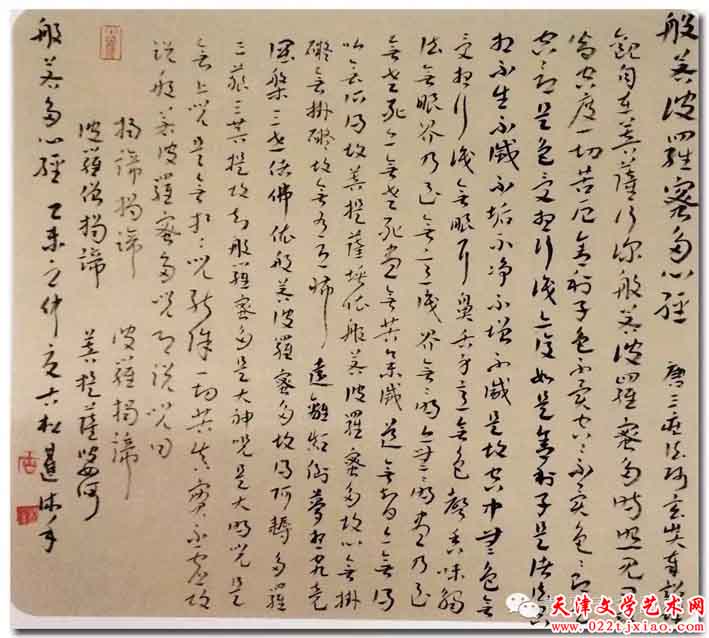 般若波羅蜜多心經 唐三藏法師玄奘奉詔譯
觀自在菩薩行深般若波羅蜜多時照見五
皆空度一切苦厄舍利子色不異空〻不異色〻即是
空〻即是色受想行識亦復如是舍利子是諸法空
相不生不滅不垢不淨不增不減是故空中無色無
受想行識無眼耳鼻舌身意無色聲香味觸
法無眼界乃至無意識界無無明亦無無明盡乃至
無老死亦無老死盡無苦集滅道無智亦無得
以無所得故菩提薩埵依般若波羅蜜多故心無掛
礙無掛礙故無有恐怖遠離顛倒夢想究竟
涅槃三世諸佛依般若波羅蜜多故得阿耨多羅
三藐三菩提故知般羅蜜多是大神咒是大明咒是
無上咒是無等〻咒能除一切苦真實不虛故
說般若波羅蜜多咒即說咒曰
揭諦揭諦 波羅揭諦
波羅僧揭諦 菩提薩婆訶
般若多心經 乙未之仲夏古松沐手
天津文学艺术网
www.022tjxiao.com